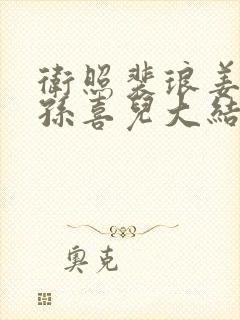 衛照裴琅姜
孫喜兒大結
奧克